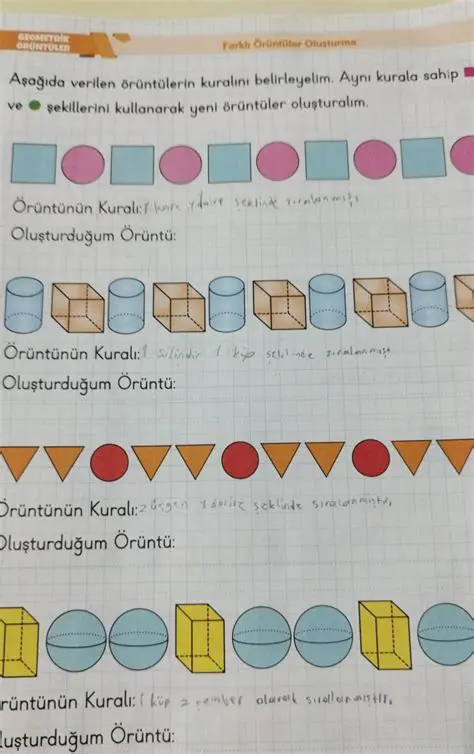 GEOMETRİK
ÖRÜNTÜLER
Farklı Örüntüler Oluşturma
Aşağıda verilen örüntülerin kuralını belirleyelim. Aynı kurala sahip
ve şekillerini kullanarak yeni örüntüler oluşturalım.
Örüntünün Kuralı: 1 kare 1 daire şeklinde sıralanmış
Oluşturduğum Örüntü:
Örüntünün Kuralı: 1 silindir 1 küp şeklinde sıralanmış
Oluşturduğum Örüntü:
Örüntünün Kuralı: 2 üçgen 1 daire şeklinde sıralanmıştır.
Oluşturduğum Örüntü:
rüntünün Kuralı: 1 küp 2 çember olarak sırallanmıştır.
luşturduğum Örüntü: